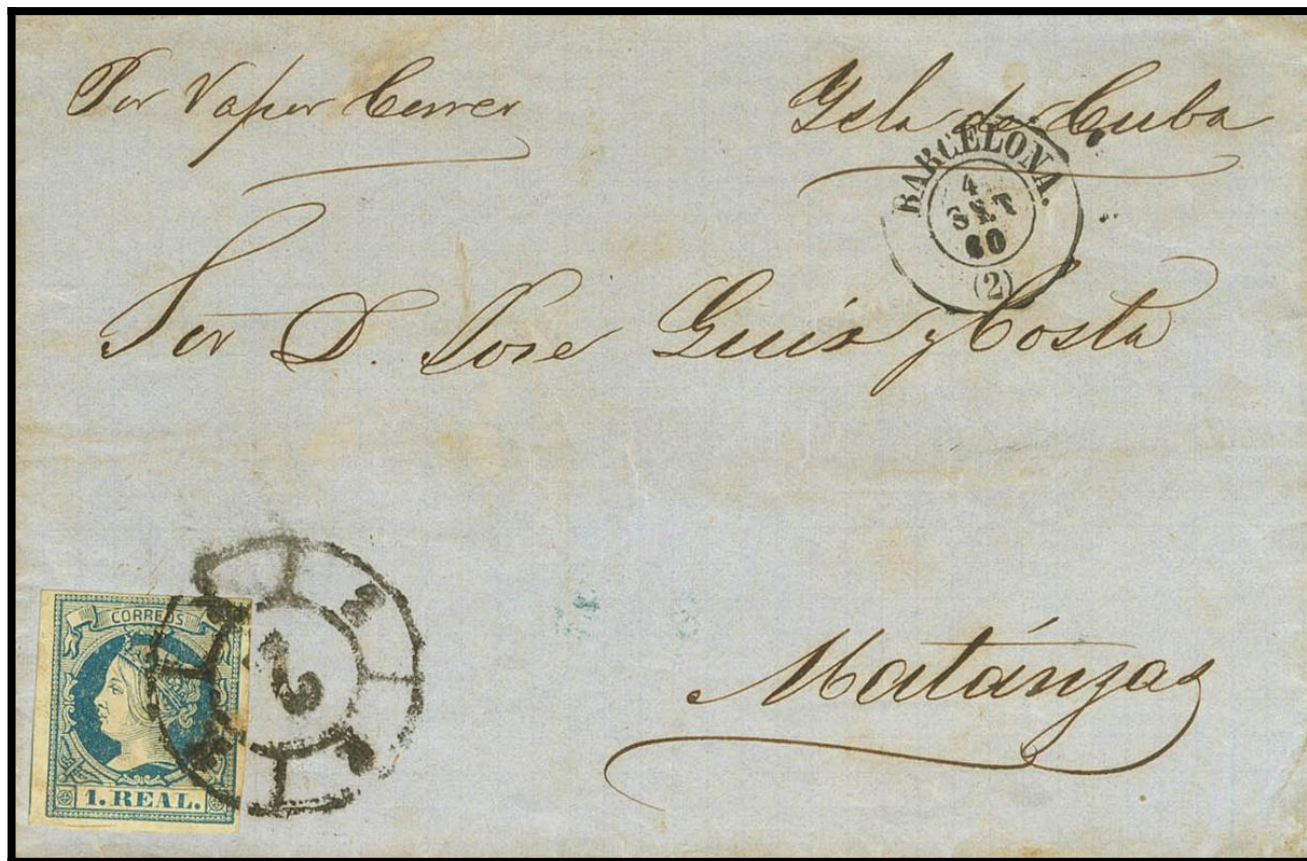 Por Vapor Correo
Ysla de Cuba
BARCELONA.
4
SET
60
(2)
Sor D. Jose Guix y Costa
Matánzas
CORREOS
1. REAL.
2